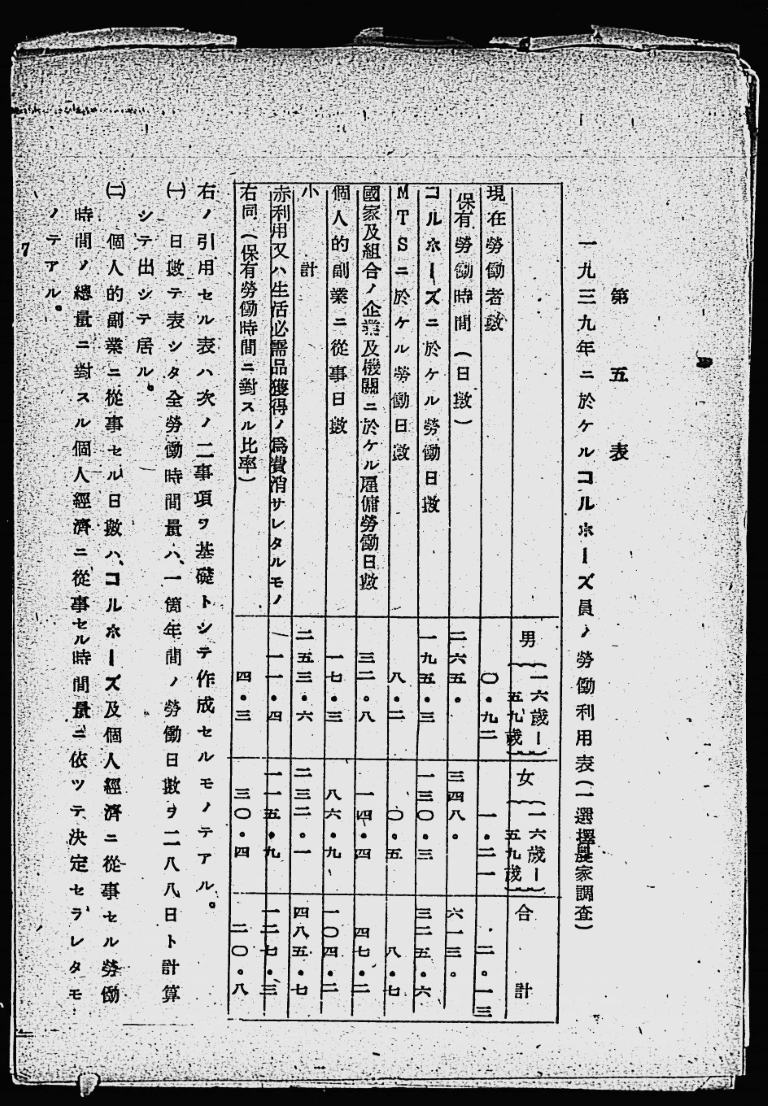 第五表
一九三九年ニ於ケルコルホーズ員ノ勞働利用表(一選擇農家調査)
男(一六歲―五九歲)
女(一六歲―五九歲)
合計
現在勞働者數 〇・九二 一・二一 二・一三
保有勞働時間(日數) 二六五・ 三四八・ 六一三。
コルホーズニ於ケル勞働日數 一九五・三 一三〇・三 三二五・六
MTSニ於ケル勞働日數 八・二 〇・五 八・七
國家及組合ノ企業及機關ニ於ケル雇傭勞働日數 三二・八 一四・四 四七・二
個人的副業ニ從事日數 一七・三 八六・九 一〇四・二
小計 二五三・六 二三二・一 四八五・七
赤利用又ハ生活必需品獲得ノ爲費消サレタルモノ 一一・四 一一五・九 一二七・三
右同(保有勞働時間ニ對スル比率) 四・三 三〇・四 二〇・八
右ノ引用セル表ハ次ノ二事項ヲ基礎トシテ作成セルモノテアル。
㈠ 日數テ表シタ全勞働時間量ハ、一箇年間ノ勞働日數ヲ二八八日ト計算
シテ出シテ居ル。
㈡ 個人的副業ニ從事セル日數ハ、コルホーズ及個人經濟ニ從事セル勞働
時間ノ總量ニ對スル個人經濟ニ從事セル時間量ニ依ツテ決定セラレタモ
ノテアル。
7